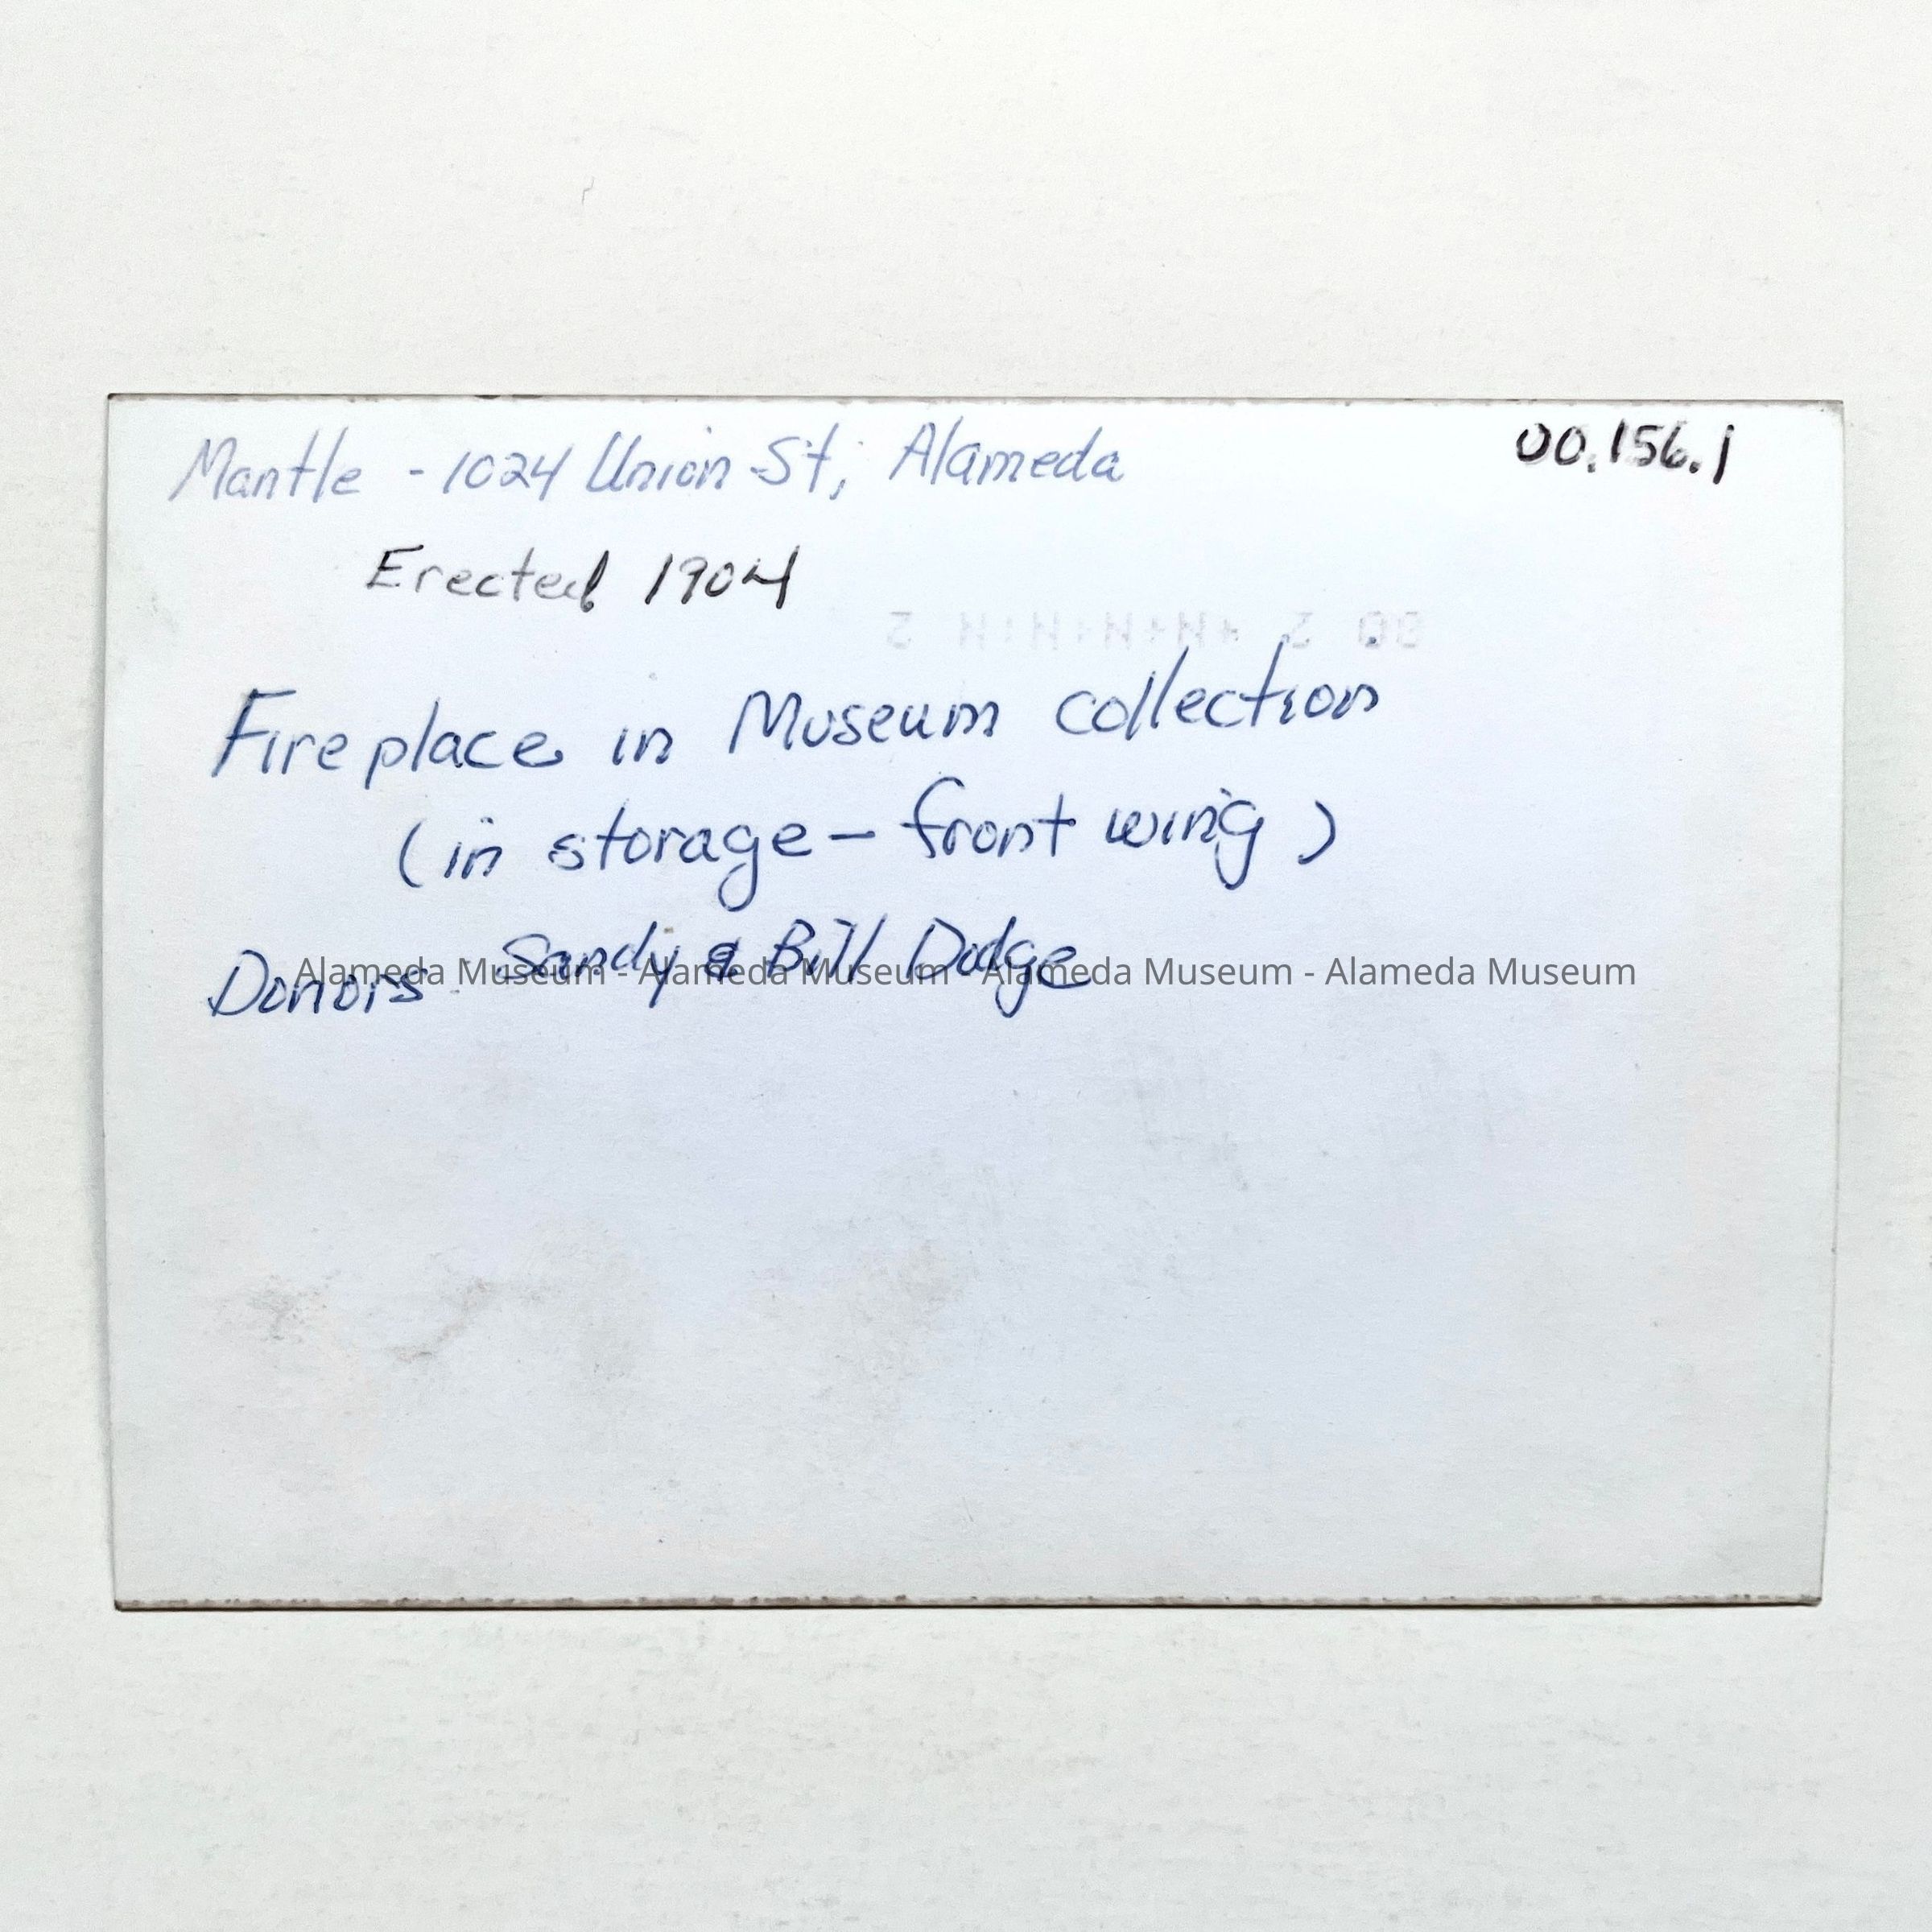 Mantle - 1024 Union St, Alameda
00.156.1
Erected 1904
Fireplace in Museum collection
(in storage - front wing)
Donors Sandy & Bill Dodge
Alameda Museum - Alameda Museum - Alameda Museum - Alameda Museum